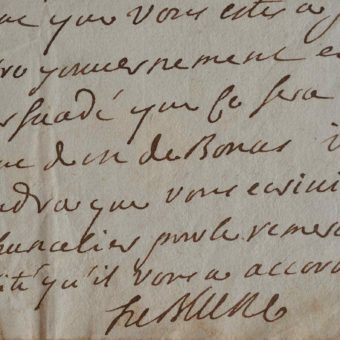 que vous estes a
gouvernement e
suadé que ce sera
que de m de Bonas i
dra que vous ecrivi
hancelier pour le remerc
ité qu'il vous a accor